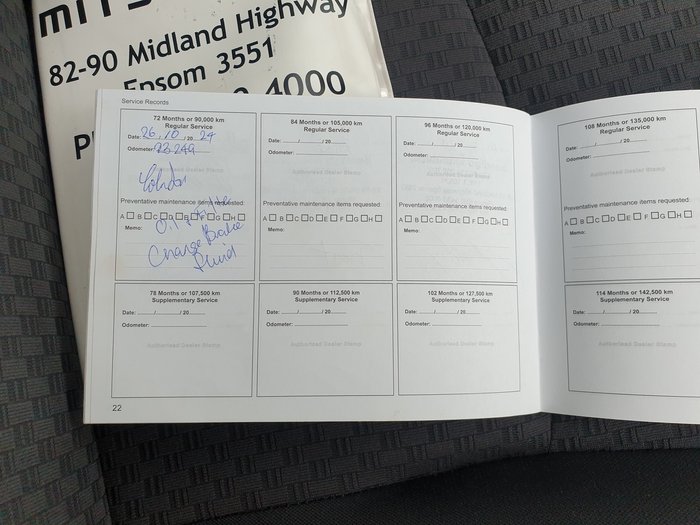 82-90 Midland Highway
Epsom 3551
4000
Service Records
72 Months or 90,000 km
Regular Service
Date: 26/10/2024
Odometer: 93249
Authorised Dealer Stamp
Preventative maintenance items requested:
A B C D E F G H
Memo: Oil & Filter
Change Brake
fluid
84 Months or 105,000 km
Regular Service
Date: ....../....../20......
Odometer:
Authorised Dealer Stamp
Preventative maintenance items requested:
A B C D E F G H
Memo:
96 Months or 120,000 km
Regular Service
Date: ....../....../20......
Odometer:
Preventative maintenance items requested:
A B C D E F G H
Memo:
108 Months or 135,000 km
Regular Service
Date: ....../....../20......
Odometer:
Authorised Dealer Stamp
Preventative maintenance items requested:
A B C D E F G H
Memo:
78 Months or 107,500 km
Supplementary Service
Date: ....../....../20......
Odometer:
Authorised Dealer Stamp
90 Months or 112,500 km
Supplementary Service
Date: ....../....../20......
Odometer:
Authorised Dealer Stamp
102 Months or 127,500 km
Supplementary Service
Date: ....../....../20......
Odometer:
Authorised Dealer Stamp
114 Months or 142,500 km
Supplementary Service
Date: ....../....../20......
Odometer:
Authorised Dealer Stamp
22